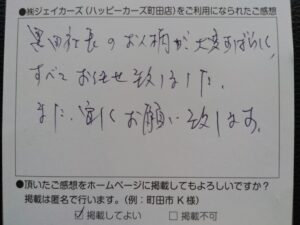 ●㈱ジェイカーズ（ハッピーカーズ町田店）をご利用になられたご感想
黒田社長のお人柄が大変すばらしく、
すべてお任せ致しました。
また、宜しくお願い致します。
●頂いたご感想をホームページに掲載してもよろしいですか？
掲載は匿名で行います。（例：町田市 K 様）
☑ 掲載してよい　□ 掲載不可